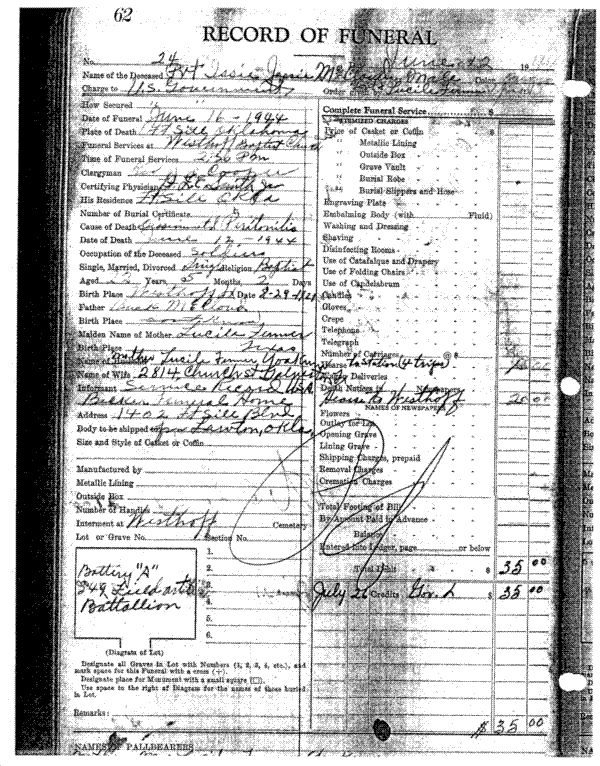 62
RECORD OF FUNERAL
No. 24 June 22 19
Name of the Deceased Pvt Issie Color
Charge to U.S. Government Order Lucile Tanner
How Secured
Date of Funeral June 16 - 1944
Place of Death Ft Sill Oklahoma
Funeral Services at Westhoff Baptist Church
Time of Funeral Services 2:30 Pm
Clergyman Cooper
Certifying Physician
His Residence Ft Sill Okla
Number of Burial Certificate
Cause of Death Peritonitis
Date of Death June 12, 1944
Occupation of the Deceased Soldier
Single, Married, Divorced Single Religion Baptist
Aged Years, Months, 2 Days
Birth Place Westhoff Tx Date 2-29-
Father
Birth Place
Maiden Name of Mother Lucile Tanner
Birth Place Texas
Name of Mother Lucile Tanner
Name of Wife 2814, Church St
Informant Service Record
Becker Funeral Home
Address 1402 Ft Sill Blvd
Body to be shipped Lawton, Okla
Size and Style of Casket or Coffin
Manufactured by
Metallic Lining
Outside Box
Number of Handles
Interment at Westhoff Cemetery
Lot or Grave No. Section No.
1.
2.
3.
4.
5.
6.
Battery "A"
349 Field arti
Battallion
(Diagram of Lot)
Designate all Graves in Lot with Numbers (1, 2, 3, 4, etc.), and
mark space for this Funeral with a cross (+).
Designate place for Monument with a small square (□).
Use space to the right of Diagram for the names of those buried
in Lot.
Remarks:
NAMES OF PALLBEARERS
Complete Funeral Service $
ITEMIZED CHARGES
Price of Casket or Coffin
" Metallic Lining
" Outside Box
" Grave Vault
" Burial Robe
" Burial Slippers and Hose
Engraving Plate
Embalming Body (with Fluid)
Washing and Dressing
Shaving
Disinfecting Rooms
Use of Catafalque and Drapery
Use of Folding Chairs
Use of Candelabrum
Candles
Gloves
Crepe
Telephone
Telegraph
Number of Carriages @ $
Hearse to station (4 trips)
Deliveries
Death Notices in Newspapers
Hearse to Westhoff 20 00
NAMES OF NEWSPAPERS
Flowers
Outlay for Lot
Opening Grave
Lining Grave
Shipping Charges, prepaid
Removal Charges
Cremation Charges
Total Footing of Bill
By Amount Paid in Advance
Balance
Entered into Ledger, page or below
Total Debit $ 35 00
July 26 Credits Gov. $ 35 00
$ 35 00